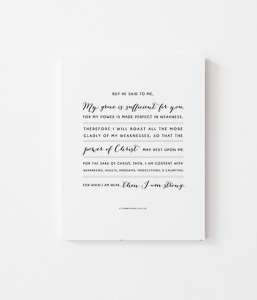 BUT HE SAID TO ME,
My grace is sufficient for you,
FOR MY POWER IS MADE PERFECT IN WEAKNESS.
THEREFORE I WILL BOAST ALL THE MORE
GLADLY OF MY WEAKNESSES, SO THAT THE
power of Christ MAY REST UPON ME.
FOR THE SAKE OF CHRIST, THEN, I AM CONTENT WITH
WEAKNESSES, INSULTS, HARDSHIPS, PERSECUTIONS, & CALAMITIES.
FOR WHEN I AM WEAK, then I am strong.
2 CORINTHIANS 12:9-10